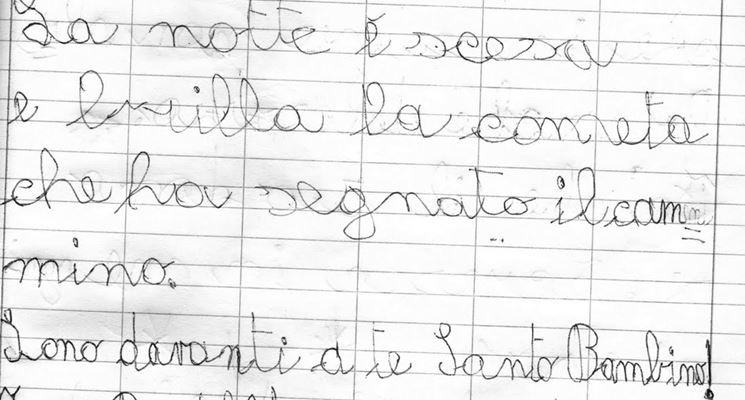 La notte è scesa
e brilla la cometa
che ha segnato il cam=
mino.
Sono davanti a te Santo Bambino!